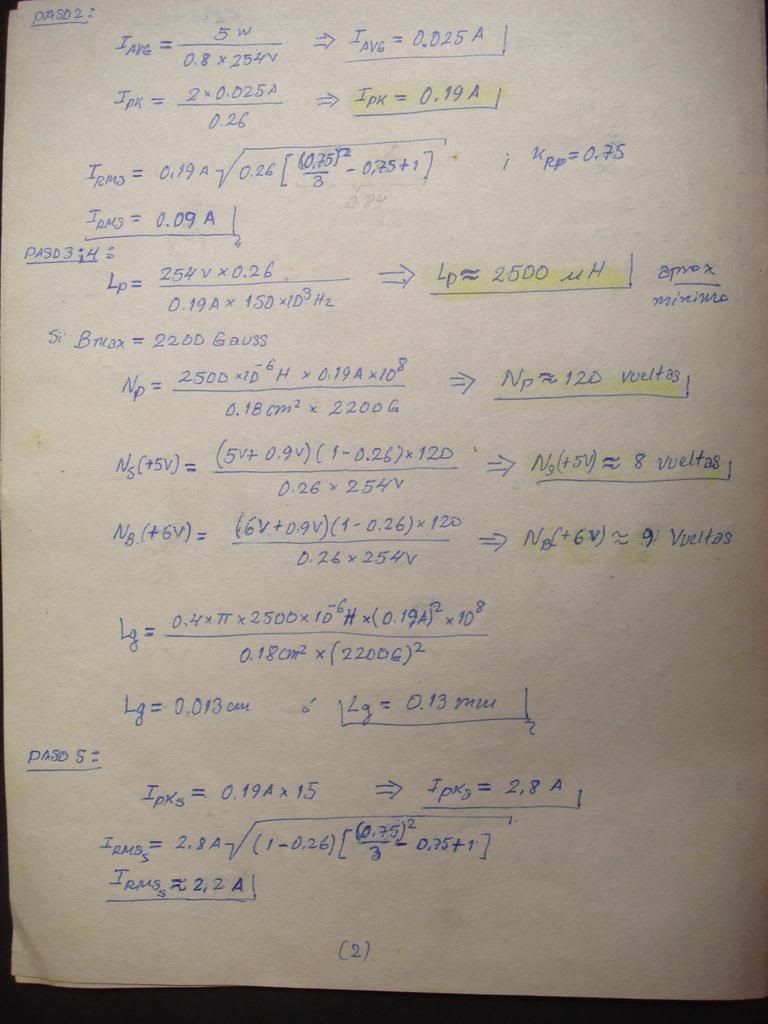 PASO 2:
I_AVG = 5 W / (0.8 × 254V) ⇒ I_AVG = 0.025 A
I_PK = (2 × 0.025A) / 0.26 ⇒ I_PK = 0.19 A
I_RMS = 0.19 A √(0.26 [(0.75)² / 3 - 0.75 + 1]) ; K_RP = 0.75
0.84
I_RMS = 0.09 A
PASO 3 y 4:
Lp = (254 V × 0.26) / (0.19 A × 150 × 10³ Hz) ⇒ Lp ≈ 2500 uH aprox minimo
Si Bmax = 2200 Gauss
Np = (2500 × 10⁻⁶ H × 0.19 A × 10⁸) / (0.18 cm² × 2200G) ⇒ Np ≈ 120 vueltas
N_S(+5V) = (5V + 0.9V)(1 - 0.26) × 120 / (0.26 × 254V) ⇒ N_S(+5V) ≈ 8 vueltas
N_B(+6V) = (6V + 0.9V)(1 - 0.26) × 120 / (0.26 × 254V) ⇒ N_B(+6V) ≈ 9 Vueltas
Lg = (0.4 × π × 2500 × 10⁻⁶ H × (0.19A)² × 10⁸) / (0.18 cm² × (2200G)²)
Lg = 0.013 cm ó Lg = 0.13 mm
PASO 5:
I_PKs = 0.19 A × 15 ⇒ I_PKs = 2.8 A
I_RMSs = 2.8 A √((1 - 0.26) [(0.75)² / 3 - 0.75 + 1])
I_RMSs ≈ 2.2 A
(2)